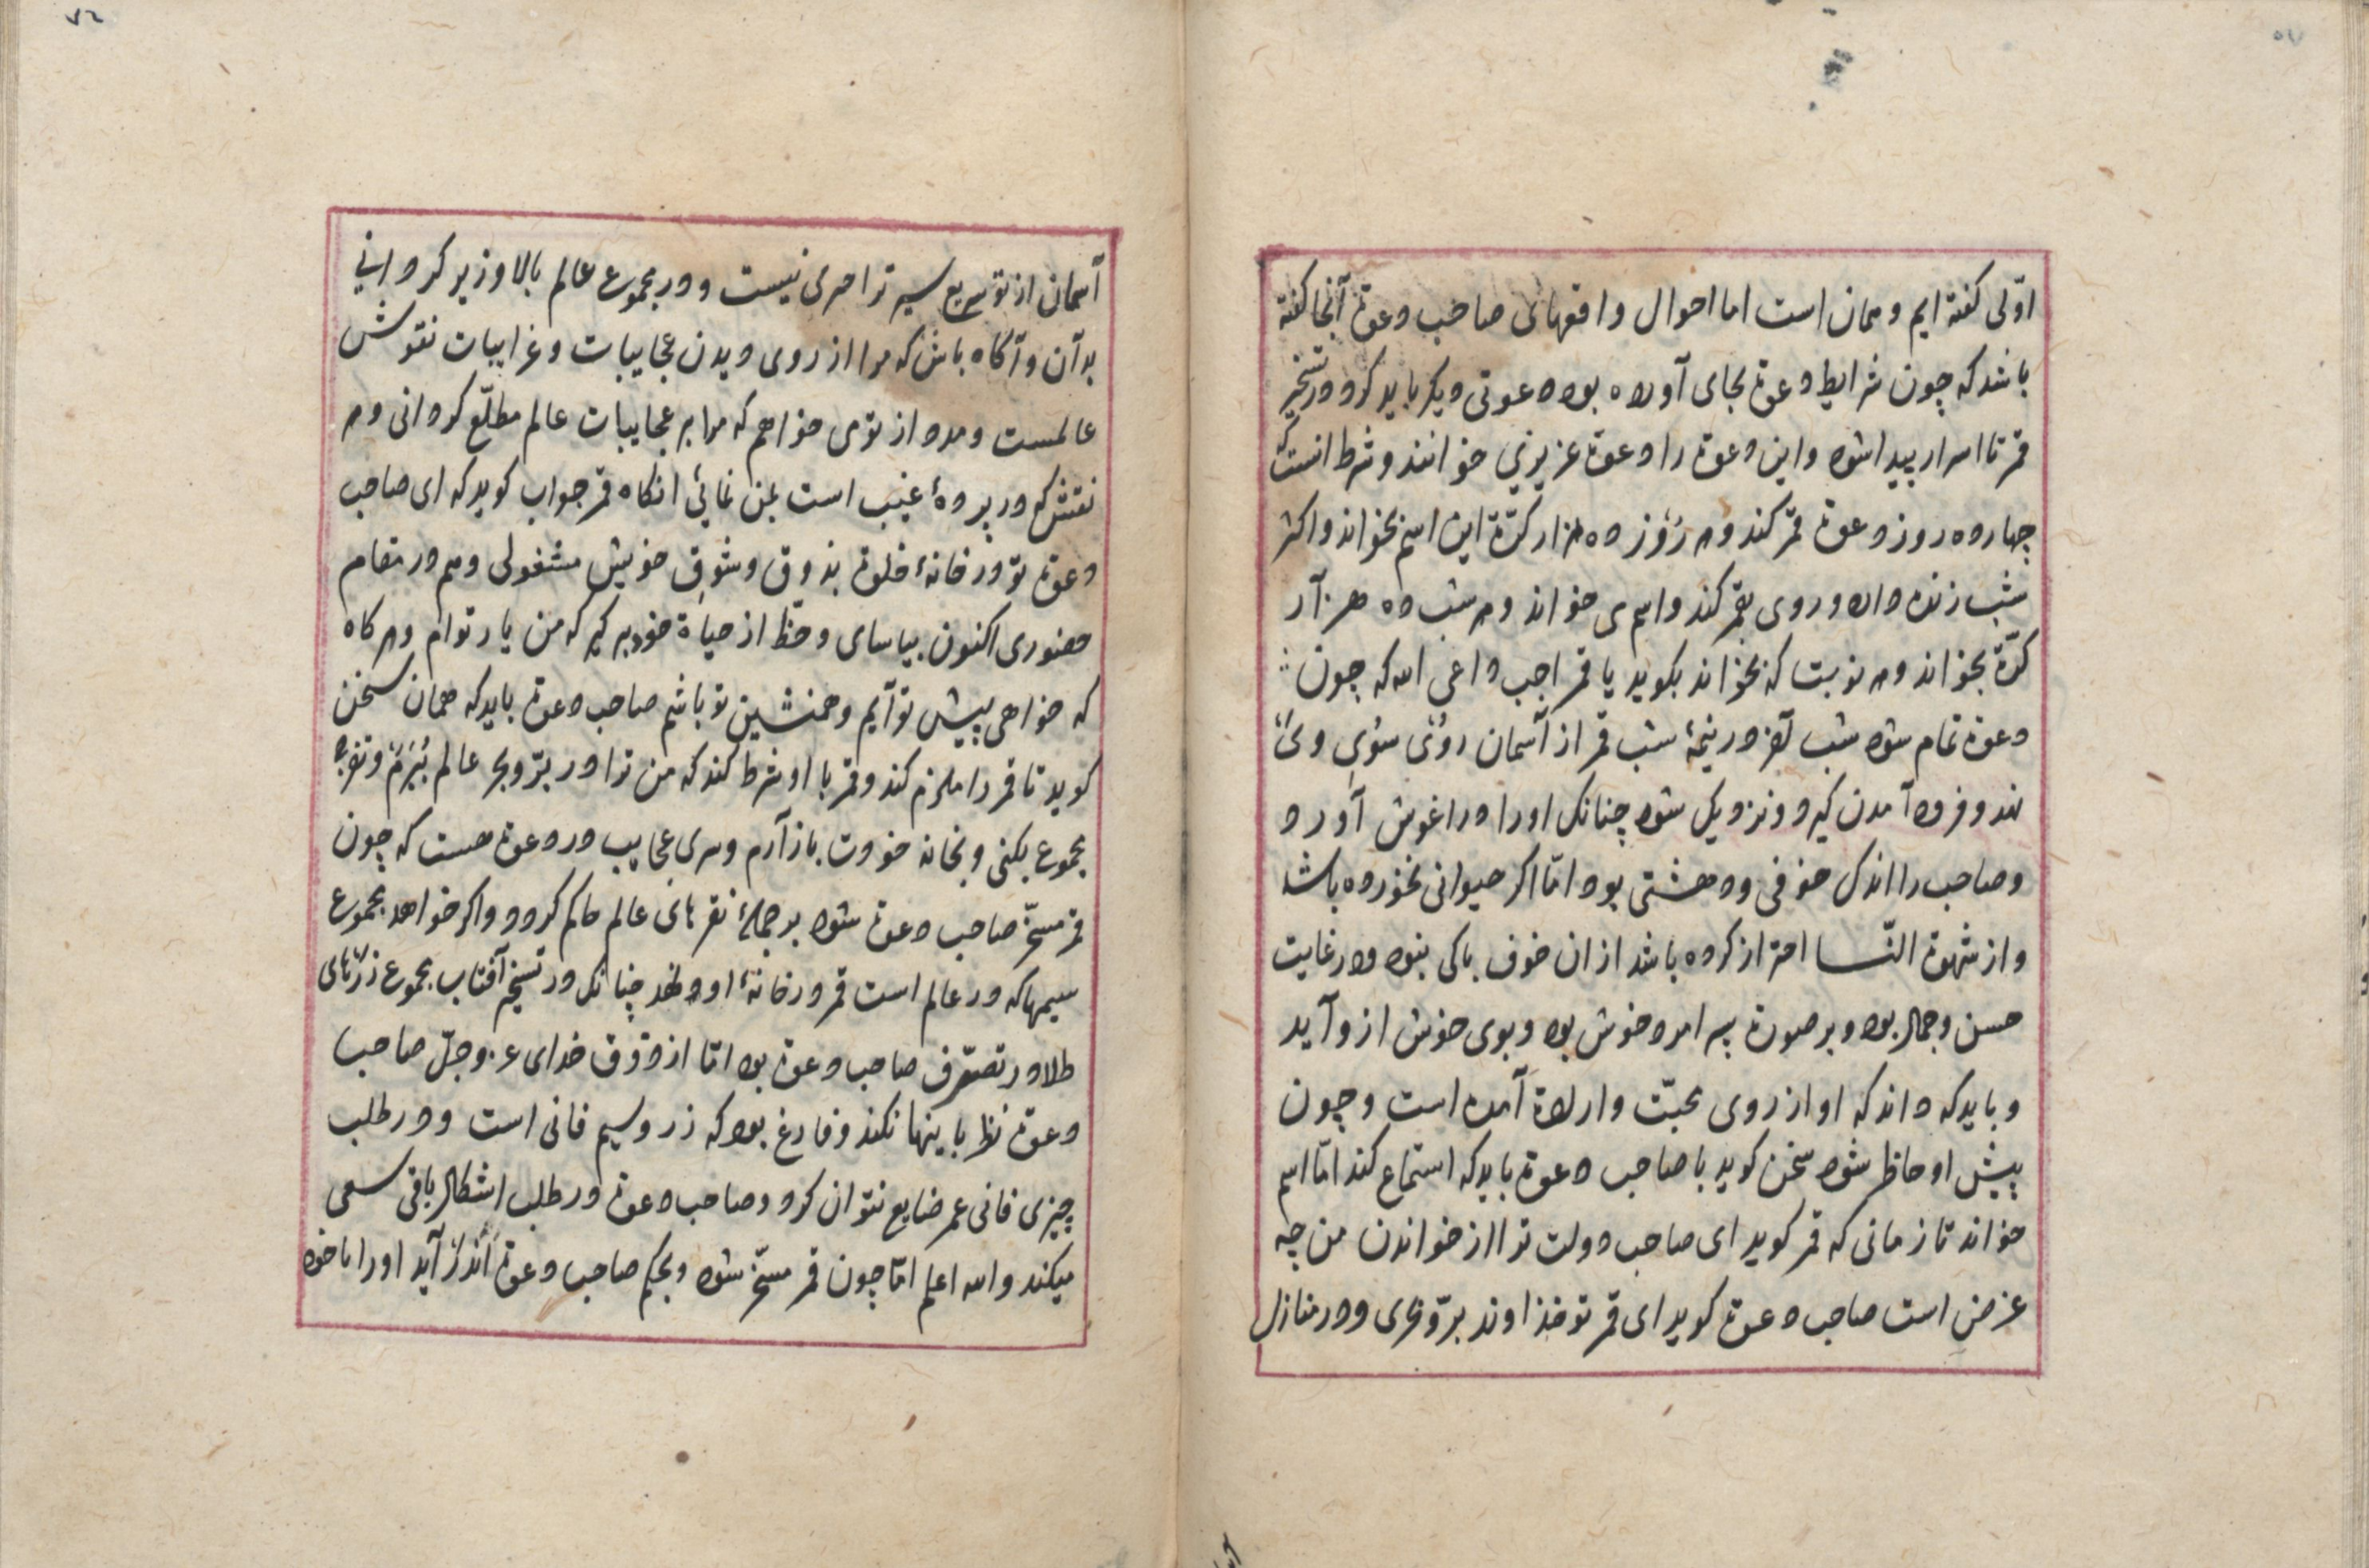 اوّلی کفته ایم و همان است اما احوال واقعهای صاحب دعوة آنجا کفته
باشد که چون شرایط دعوة بجای آورده بود دعوتی دیکر باید کرد و در تسخیر
قمر تا اسرار پیدا شود و این دعوة را دعوة عزیزی خوانند و شرط انست که
چهارده روز دعوة قمر کند و هر رُوز ده هزار کرّة این اسم بخواند و اکثر
شب زنده دارد و روی بقمر کند و اسم می خواند و هر شب ده هزار
کرّة بخواند و هر نوبت که بخواند بکوید یا قمر اجب داعی الله که چون
دعوة تمام شود شب آخر در نیمۀ شب قمر از آسمان روُی سُویِ وی
نهد و فرود آمدن کیرد و نزدیک شود چنانکه اورا در اغوش آورد
و صاحب را اندک خوفی و دهشتی بود امّا اکر حیوانی نخورده باشد
و از شهوة النّسا احتراز کرده باشد از ان خوف باکی نبود و در غایت
حسن و جمال بود و بر صورة پسر امرد خوش بود و بوی خوش از و آید
و باید که داند که او از روی محبّت و ارادة آمده است و چون
پیش او حاظر شود سخن کوید با صاحب دعوة باید که استماع کند امّا اسم
خواند تا زمانی که قمر کوید ای صاحب دولت ترا از خواندن من چه
عرض است صاحب دعوة کوید ای قمر تو خداوند برّ و بحری و در منازل
آسمان از تو سریع سیر تر احدی نیست و در مجموع عالم بالا و زیر کردانی
بدآن و آکاه باش که مرا از روی دیدن عجایبات و غرایبات نقوش
عالمست و مدد از تو می خواهم که مرا بر عجایبات عالم مطلّع کردانی و هر
نقش که در پردۀ غیب است بمن نمائی انکاه قمر جواب کوید که ای صاحب
دعوة تو در خانۀ خلوة بذوق و شوق خویش مشغولی و هم در مقام
حضوری اکنون بیاسای و حظ از حیاة خود بر کیر که من یار توام و هر کاه
که خواهی پیش تو آیم و همنشین تو باشم صاحب دعوة باید که همان سخن
کوید تا قمر را ملزم کند و قمر با او شرط کند که من ترا در برّ و بحر عالم بُبَرم و تفرج
مجموع بکنی و بخانه خودت باز آرم و سری عجایب در دعوة هست که چون
قمر مسخّر صاحب دعوة شود بر جملۀ نقرهای عالم حاکم کردد و اکر خواهد مجموع
سیمها که در عالم است قمر در خانۀ او نهد چنانکه در تسخیر آفتاب مجموع زرّهای
طلا در تصرّف صاحب دعوة بود امّا از ذوق خدای عز و جلّ صاحب
دعوة نظر با ینها نکند و فارغ بود که زر و سیم فانی است و در طلب
چیزی فانی عمر ضایع نتوان کرد و صاحب دعوة در طلب اشکال باقی سعی
میکند والله اعلم امّا چون قمر مسخّر شود و بحکم صاحب دعوة اندر آید اورا با خود